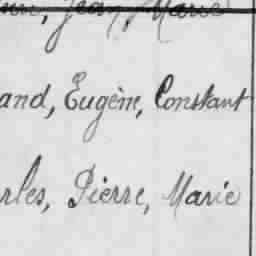 Jean, Marie
and, Eugène, Constant
rles, Pierre, Marie